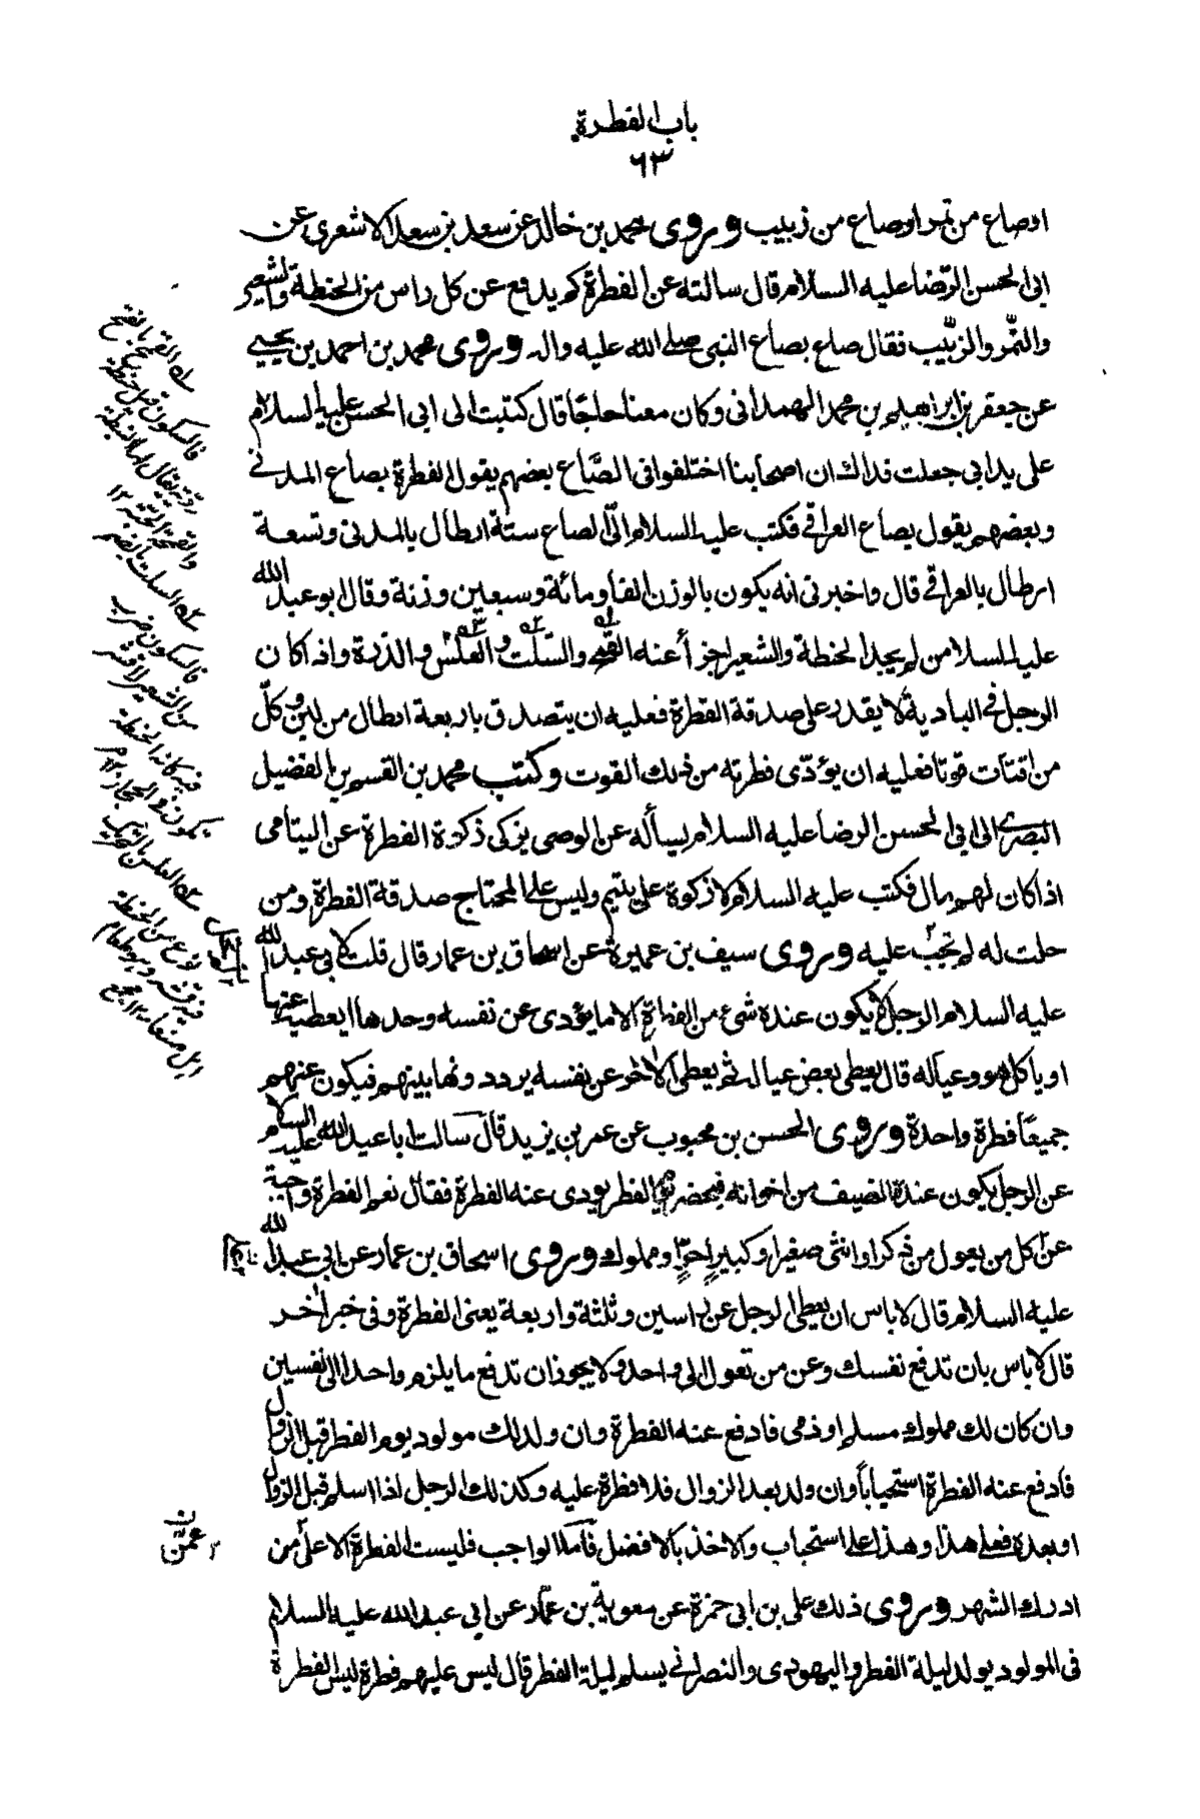 باب الفطرة
٦٣
اوصاع من تمر اوصاع من زبيب وروى محمد بن خالد عن سعد بن سعد الاشعرى عن
ابى الحسن الرضا عليه السلام قال سالته عن الفطرة كم يدفع عن كل راس من الحنطة والشعير
والتمر والزبيب فقال صاع بصاع النبى صلى الله عليه واله وروى محمد بن احمد بن يحيى
عن جعفر بن ابراهيم بن محمد الهمدانى وكان معنا حاجا قال كتبت الى ابى الحسن عليه السلام
على يد ابى جعلت فداك ان اصحابنا اختلفوا فى الصاع بعضهم يقول الفطرة بصاع المدنى
وبعضهم يقول بصاع العراقى فكتب عليه السلام الىّ الصاع ستة ارطال بالمدنى وتسعة
ارطال بالعراقى قال واخبرنى انه يكون بالوزن الفا ومائة وسبعين وزنة وقال ابو عبد الله
عليه السلام من لم يجد الحنطة والشعير اجزأ عنه القمح والسلت والعلس والذرة واذا كان
الرجل فى البادية لا يقدر على صدقة الفطرة فعليه ان يتصدق باربعة ارطال من لبن وكلّ
من اقتات قوتا فعليه ان يؤدّى فطرته من ذلك القوت وكتب محمد بن القسم بن الفضيل
البصرى الى ابى الحسن الرضا عليه السلام يسأله عن الوصى يزكى زكوة الفطرة عن اليتامى
اذا كان لهم مال فكتب عليه السلام لا زكوة على يتيم وليس على المحتاج صدقة الفطرة ومن
حلت له لم تجب عليه وروى سيف بن عميرة عن اسحاق بن عمار قال قلت لابى عبد الله
عليه السلام الرجل لا يكون عنده شئ من الفطرة الا ما يؤدى عن نفسه وحدها ايعطيه عنها
او ياكل هو وعياله قال يعطى بعض عياله ثم يعطى الاخر عن نفسه يرددونها بينهم فيكون عنهم
جميعا فطرة واحدة وروى الحسن بن محبوب عن عمر بن يزيد قال سالت ابا عبد الله عليه السلام
عن الرجل يكون عنده الضيف من اخوانه فيحضر يوم الفطر يودى عنه الفطرة فقال نعم الفطرة واجبة
عن كل من يعول من ذكر او انثى صغير او كبير حرّ او مملوك وروى اسحاق بن عمار عن ابى عبد الله
عليه السلام قال لا باس ان يعطى الرجل عن راسين وثلثة واربعة يعنى الفطرة وفى خبر اخر
قال لا باس بان تدفع نفسك وعن من تعول الى واحد ولا يجوز ان تدفع ما يلزم واحدا الى نفسين
وان كان لك مملوك مسلم او ذمى فادفع عنه الفطرة وان ولد لك مولود يوم الفطر قبل الزوال
فادفع عنه الفطرة استحبابا وان ولد بعد الزوال فلا فطرة عليه وكذلك الرجل اذا اسلم قبل الزوال
او بعده فعلى هذا وهذا على استحباب والاخذ بالافضل فاما الواجب فليست الفطرة الا على من
ادرك الشهر وروى ذلك على بن ابى حمزة عن معوية بن عمّار عن ابى عبد الله عليه السلام
فى المولود يولد ليلة الفطر واليهودى والنصرانى يسلم ليلة الفطر قال ليس عليهم فطرة ليس الفطرة
القمح بالفتح
فالسكون قيل حنطة
السلت بالضم
فالسكون ضرب
من الشعير لا قشر
فيه كانه الحنطة
يكون فى الحجاز
العلس بالتحريك
نوع من الحنطة